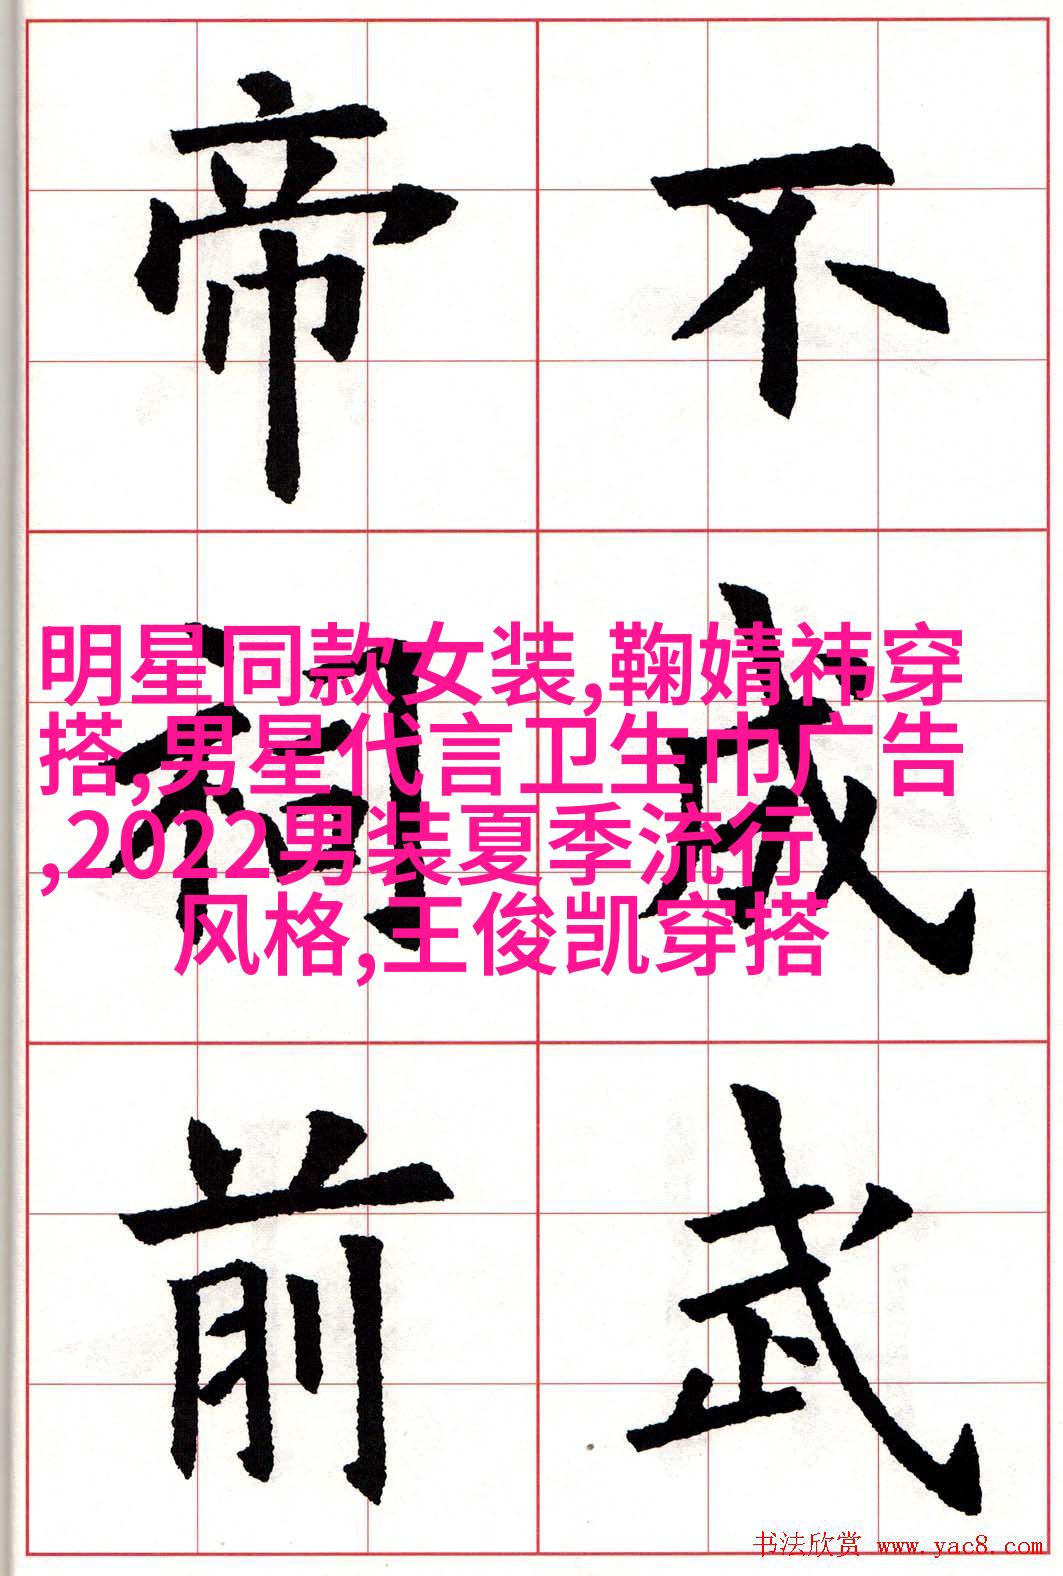 不
武
帝
祠
前
明星同款女装,鞠婧祎穿
搭,男星代言卫生巾广告
,2022男装夏季流行
风格,王俊凯穿搭
书法欣赏 www.yac8.com